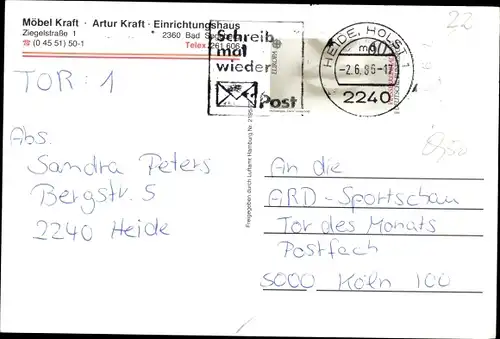 Möbel Kraft · Artur Kraft · Einrichtungshaus
Ziegelstraße 1 * 2360 Bad
☎ (0 45 51) 50-1 Telex 261 606
Schreib
mal
wieder
Post
EUROPA
HEIDE, HOLST 1
-2.6.86-17
2240
22
8,50
TOR: 1
Abs.
Sandra Peters
Bergstr. 5
2240 Heide
Freigegeben durch Luftamt Hamburg Nr.
An die
ARD-Sportschau
Tor des Monats
Postfach
5000 Köln 100